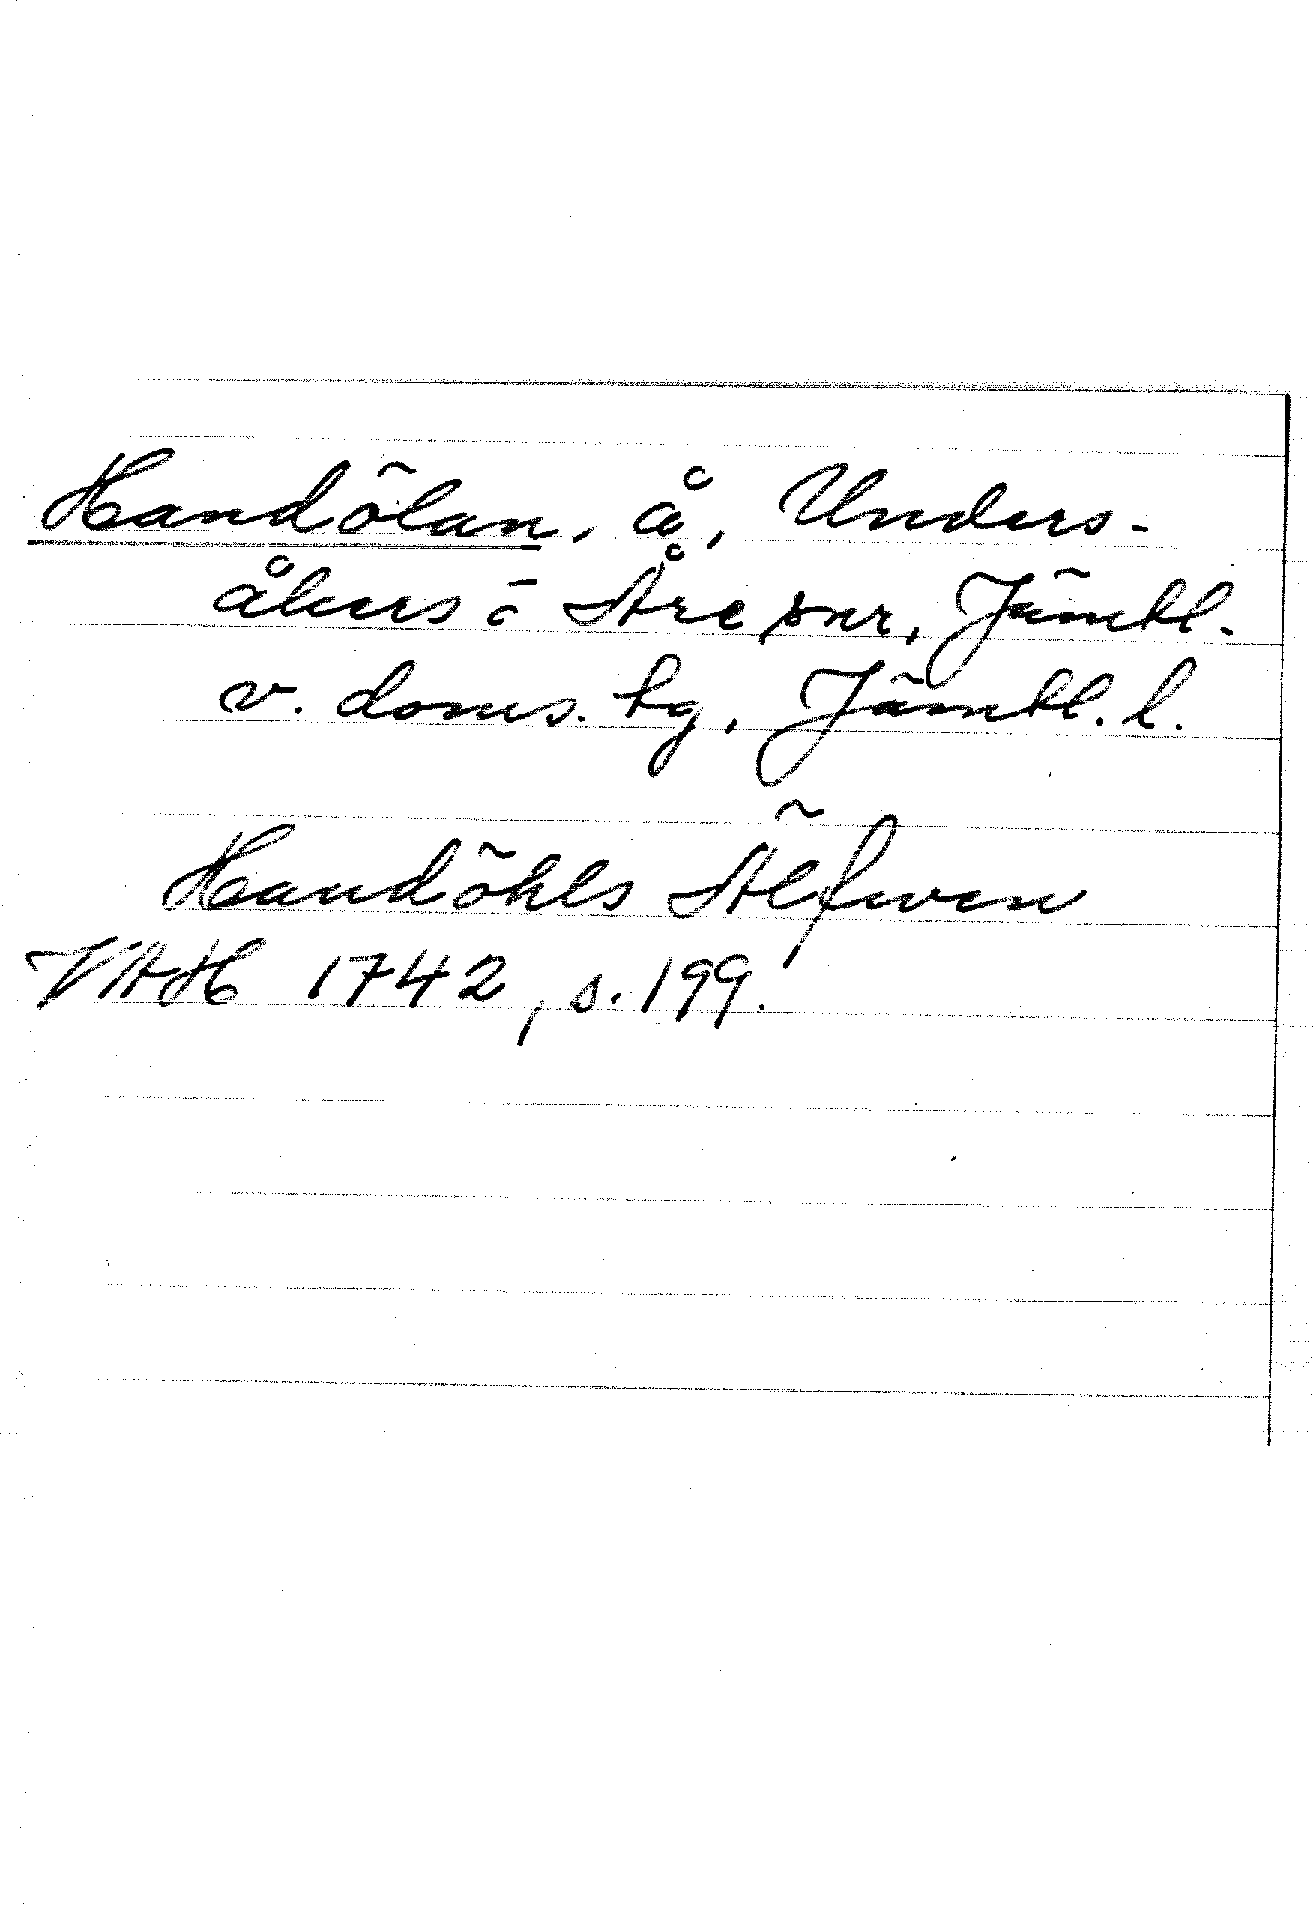 Handölan, å, Unders-
åkers o Åre snr, Jämtl.
v. doms. tg, Jämtl. l.
Handöhls Älfwen
VAH 1742, s. 199.